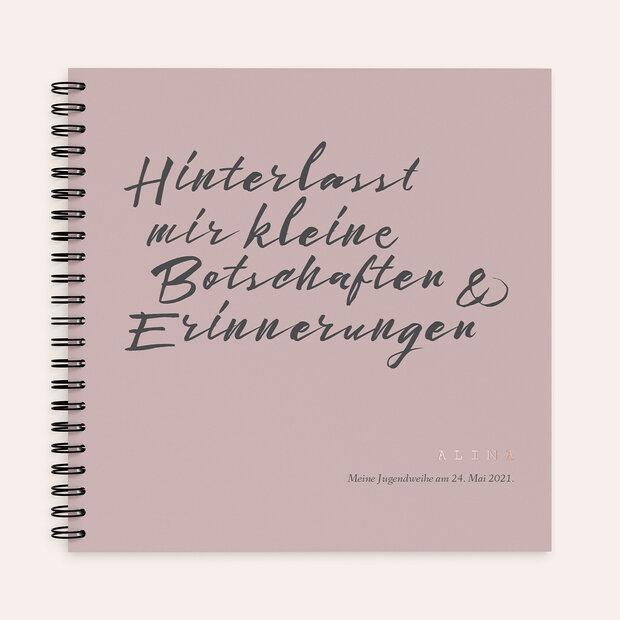 Hinterlasst
mir kleine
Botschaften &
Erinnerungen
ALINA
Meine Jugendweihe am 24. Mai 2021.